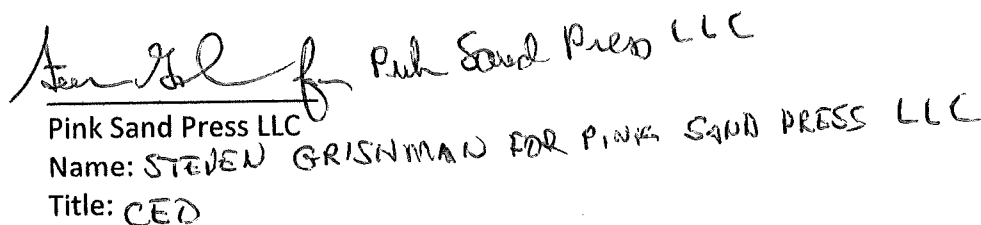 for Pink Sand Press LLC
Pink Sand Press LLC
Name: STEVEN GRISHMAN FOR PINK SAND PRESS LLC
Title: CEO